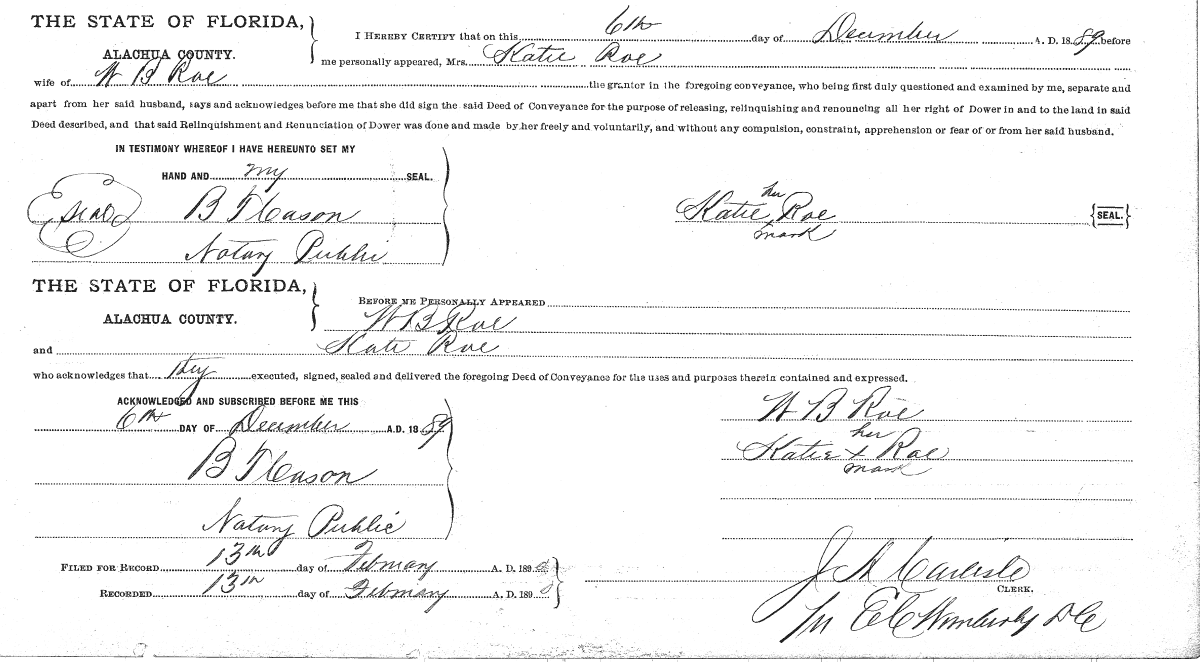 THE STATE OF FLORIDA,
ALACHUA COUNTY.
I HEREBY CERTIFY that on this 6th day of December A. D. 1889 before
me personally appeared, Mrs. Katie Roe
wife of W B Roe the grantor in the foregoing conveyance, who being first duly questioned and examined by me, separate and
apart from her said husband, says and acknowledges before me that she did sign the said Deed of Conveyance for the purpose of releasing, relinquishing and renouncing all her right of Dower in and to the land in said
Deed described, and that said Relinquishment and Renunciation of Dower was done and made by her freely and voluntarily, and without any compulsion, constraint, apprehension or fear of or from her said husband.
IN TESTIMONY WHEREOF I HAVE HEREUNTO SET MY
HAND AND my SEAL.
Seal
B F
Notary Public
her
Katie Roe
mark
{SEAL.}
THE STATE OF FLORIDA,
ALACHUA COUNTY.
BEFORE ME PERSONALLY APPEARED
W B Roe
and Kate Roe
who acknowledges that they executed, signed, sealed and delivered the foregoing Deed of Conveyance for the uses and purposes therein contained and expressed.
ACKNOWLEDGED AND SUBSCRIBED BEFORE ME THIS
6th DAY OF December A.D. 1889
B F
Notary Public
W B Roe
her
Katie x Roe
mark
FILED FOR RECORD 13th day of February A. D. 189
RECORDED 13th day of February A. D. 189
J A Carlisle
CLERK.
E C Wimberly D C